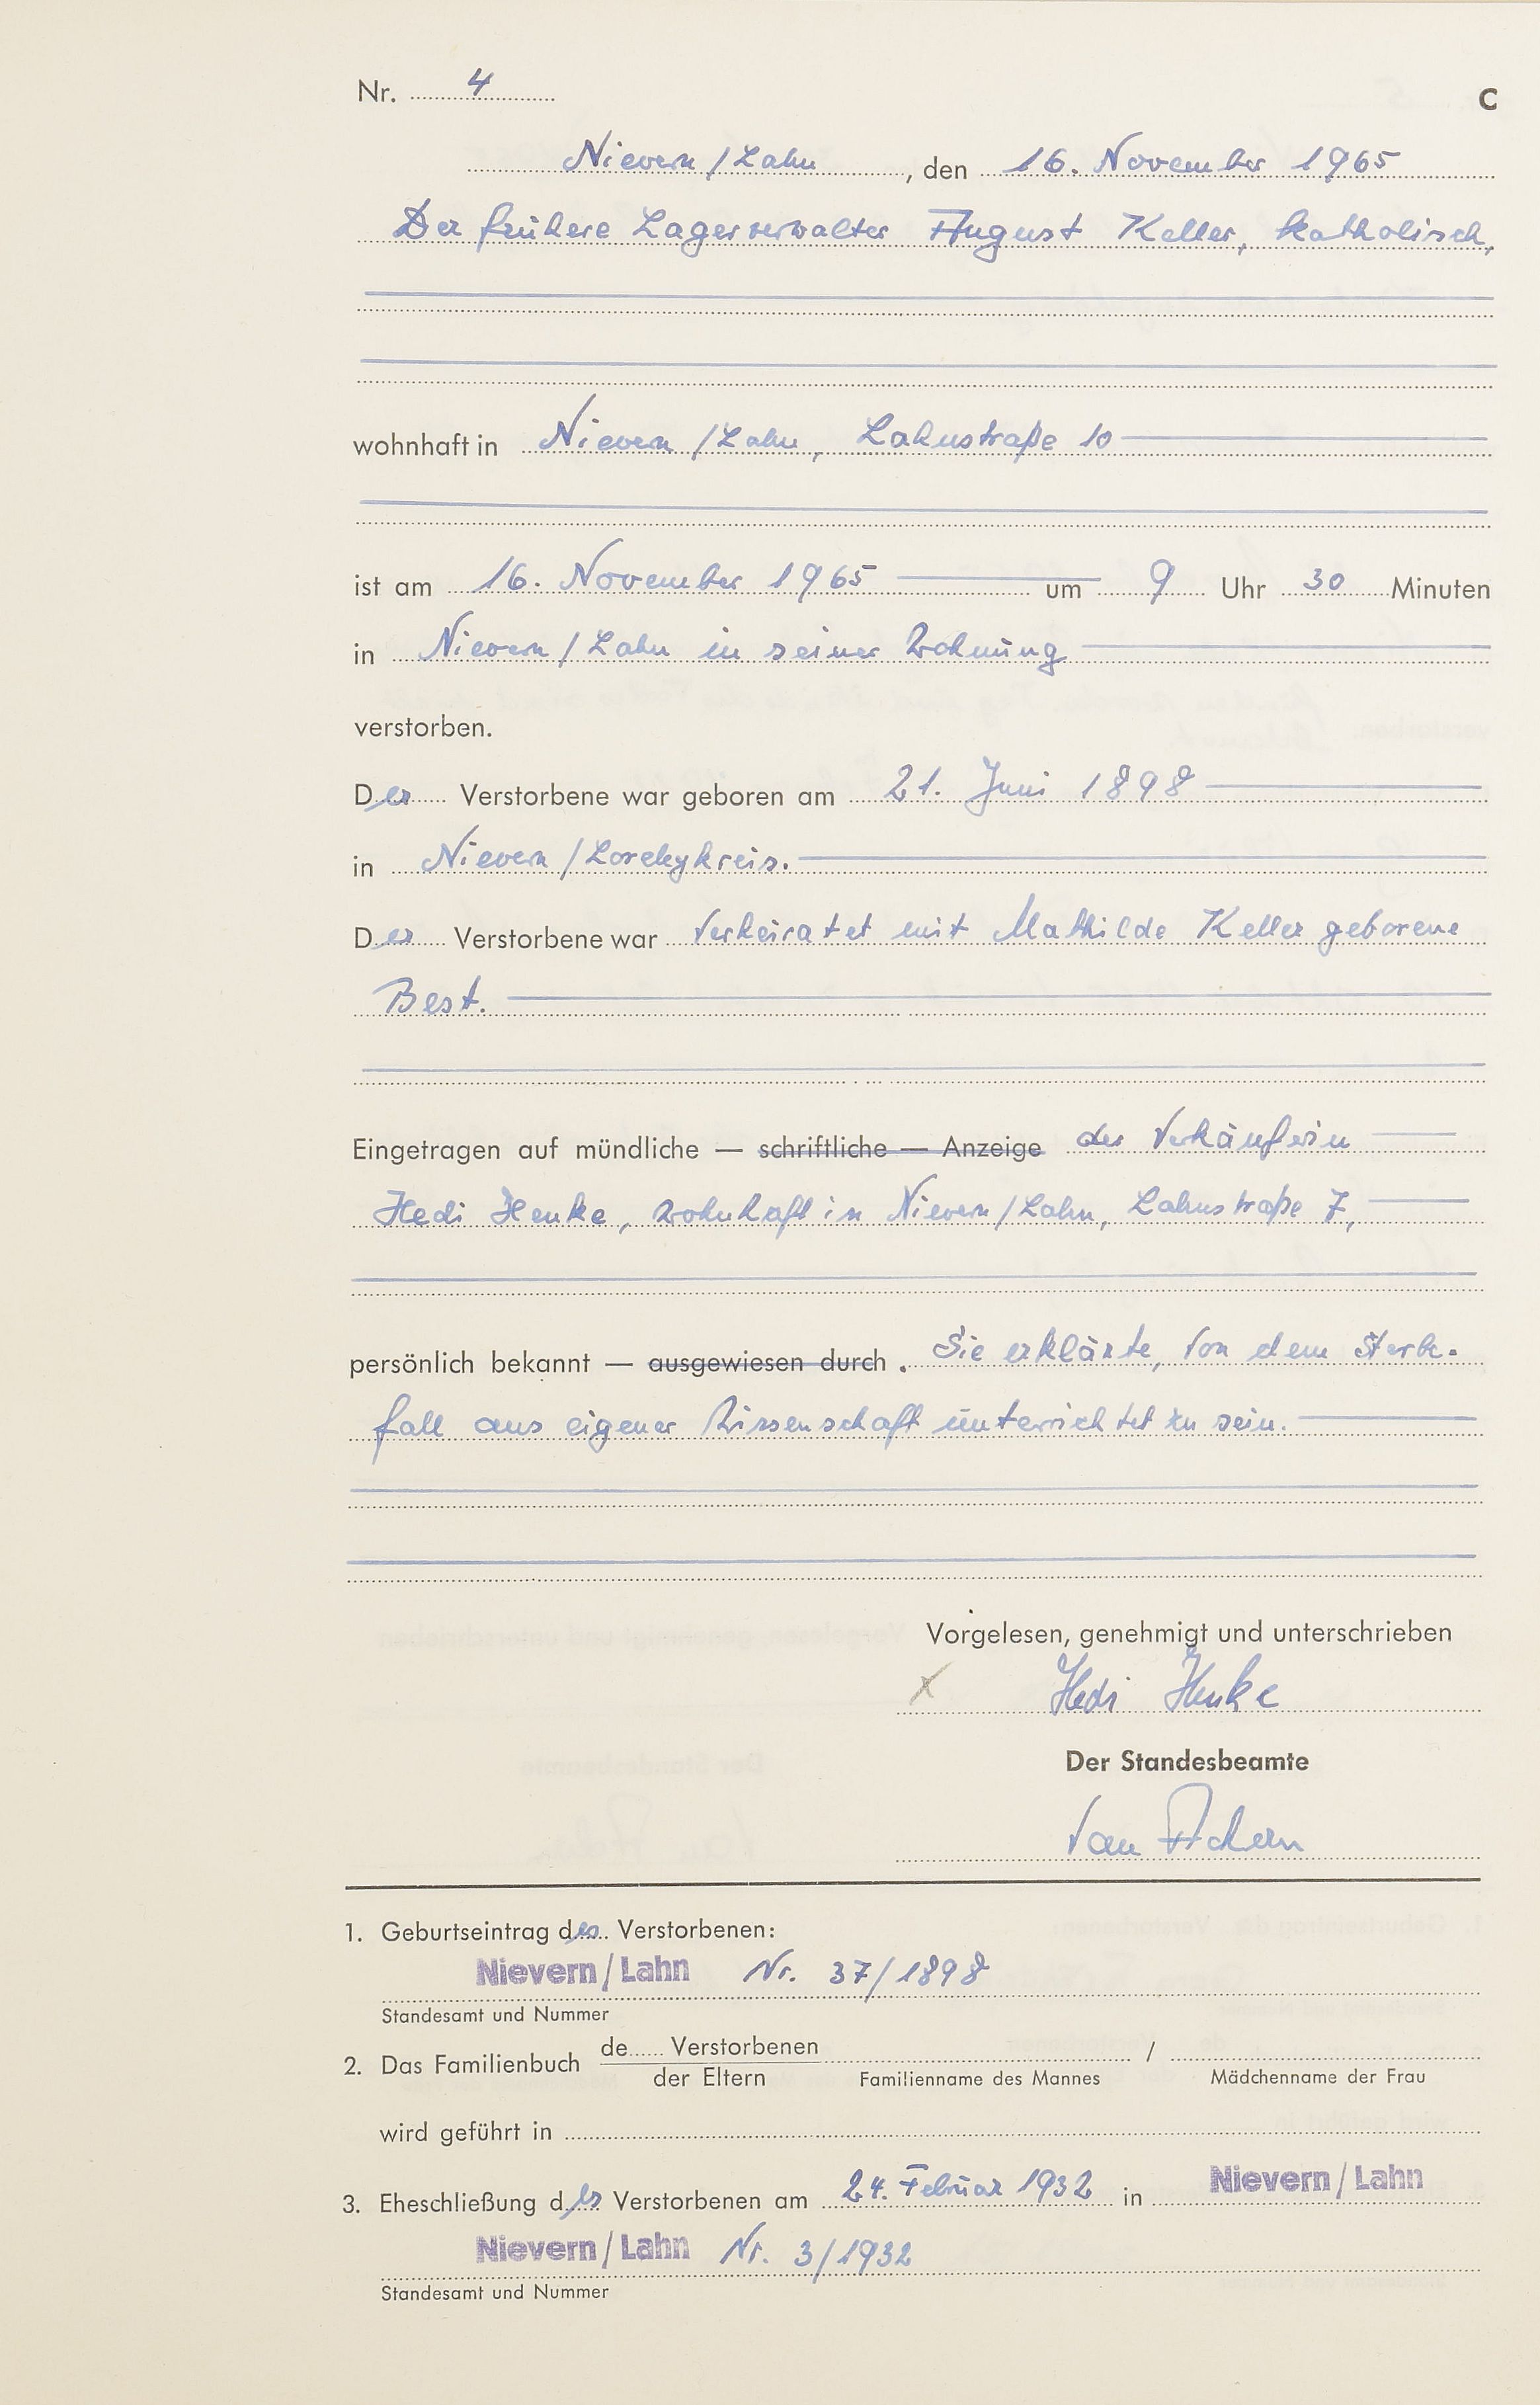 Nr. 4
C
Nievern/Lahn, den 16. November 1965
Der frühere Lagerverwalter August Keller, katholisch,
wohnhaft in Nievern/Lahn, Lahnstraße 10
ist am 16. November 1965 um 9 Uhr 30 Minuten
in Nievern/Lahn in seiner Wohnung
verstorben.
Der Verstorbene war geboren am 21. Juni 1898
in Nievern/Loreleykreis.
Der Verstorbene war verheiratet mit Mathilde Keller geborene
Best.
Eingetragen auf mündliche — schriftliche — Anzeige der Verkäuferin
Hedi Henke, wohnhaft in Nievern/Lahn, Lahnstraße 7,
persönlich bekannt — ausgewiesen durch. Sie erklärte, von dem Sterbe-
fall aus eigener Wissenschaft unterrichtet zu sein.
Vorgelesen, genehmigt und unterschrieben
x Hedi Henke
Der Standesbeamte
Van Achern
1. Geburtseintrag des Verstorbenen:
Nievern/Lahn Nr. 37/1898
Standesamt und Nummer
2. Das Familienbuch de...... Verstorbenen / 
der Eltern Familienname des Mannes Mädchenname der Frau
wird geführt in
3. Eheschließung des Verstorbenen am 24. Februar 1932 in Nievern/Lahn
Nievern/Lahn Nr. 3/1932
Standesamt und Nummer